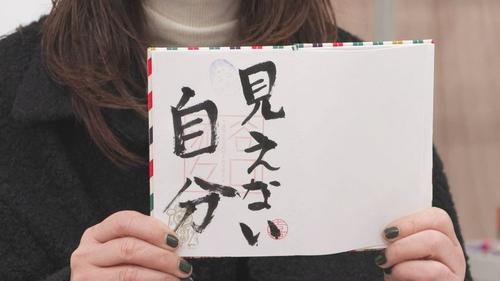 見えない
自分